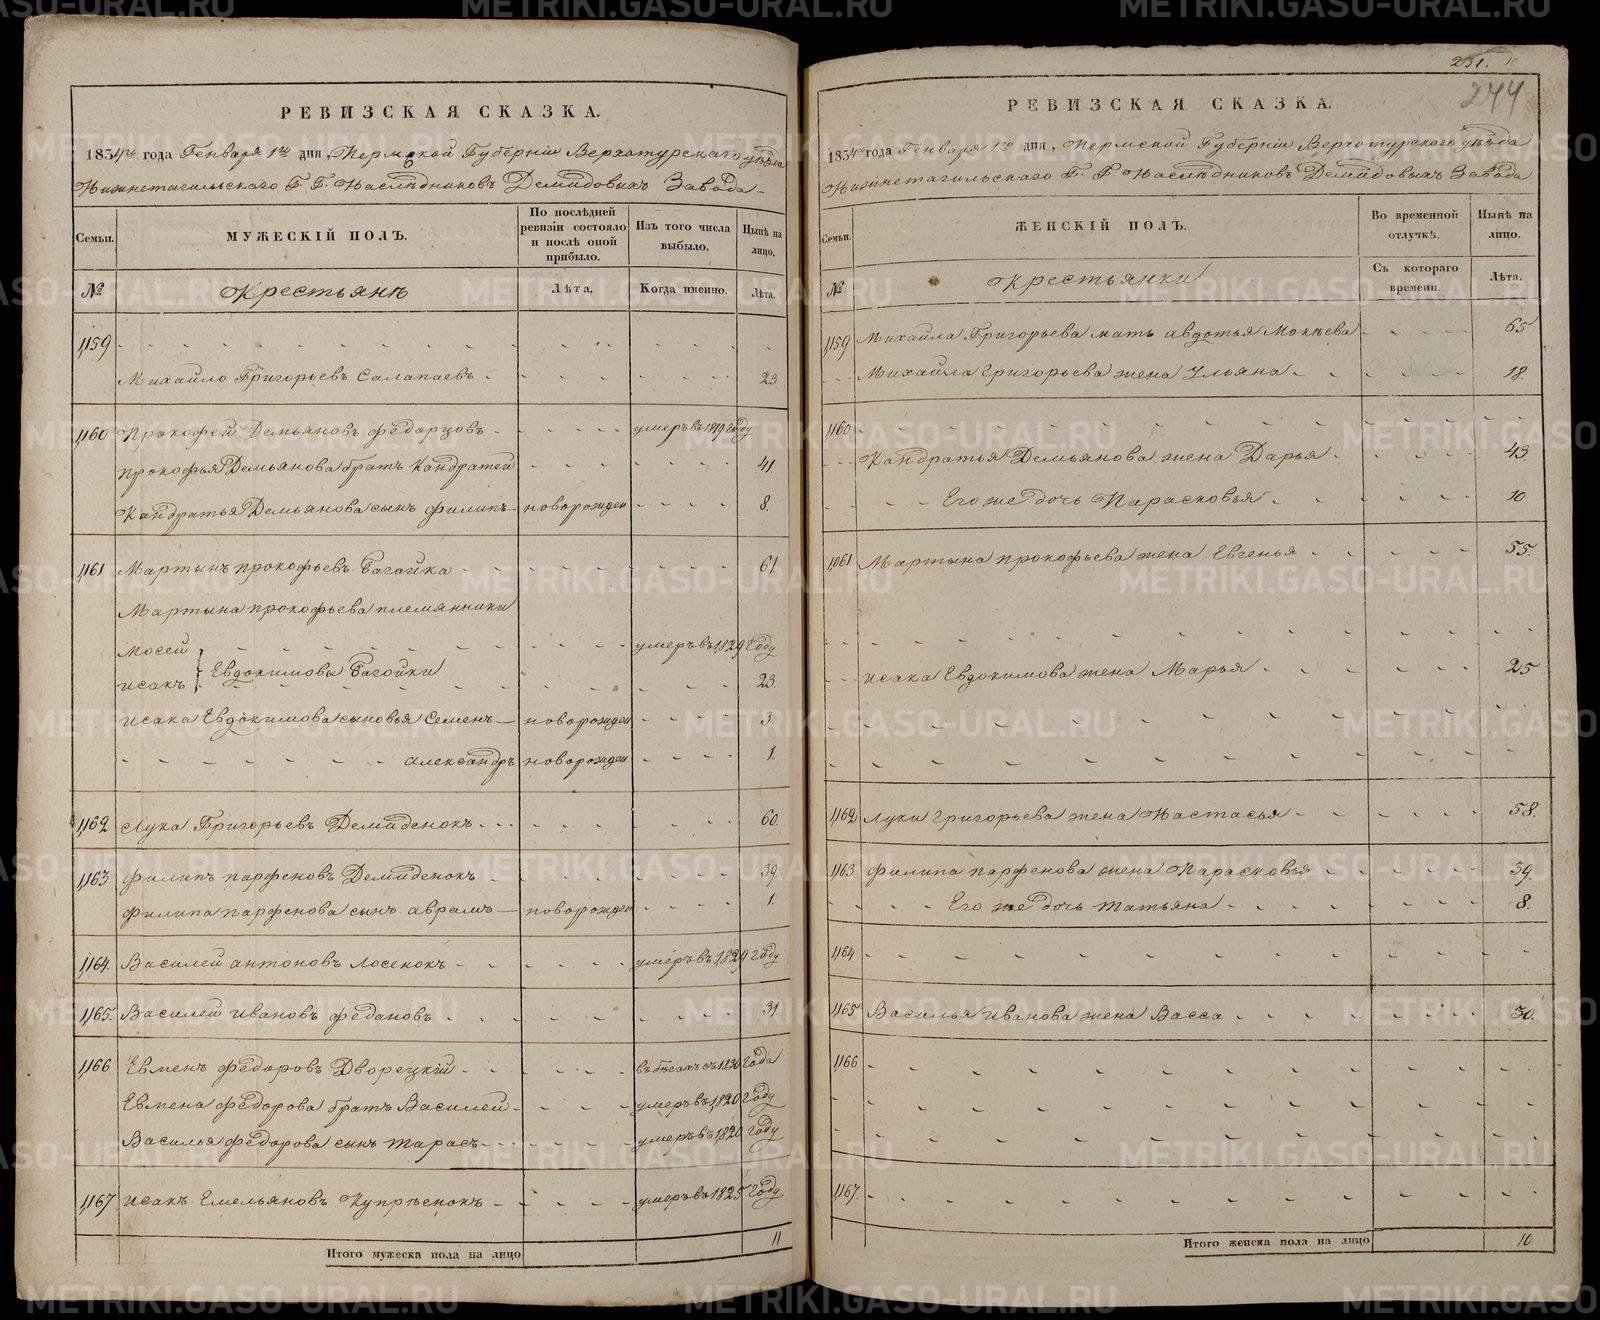 РЕВИЗСКАЯ СКАЗКА.
1834го года Генваря 1го дня, Пермской Губернии Верхотурского уѣзда
Нижнетагильского Г. Г. Наслѣдниковъ Демидовыхъ Завода
Семьи.
МУЖЕСКІЙ ПОЛЪ.
По послѣдней ревизіи состояло и послѣ оной прибыло.
Изъ того числа выбыло.
Нынѣ на лицо.
№
Крестьянъ
Лѣта.
Когда именно.
Лѣта.
1,159
Михайло Григорьевъ Салапаевъ 23
1,160 Прокофей Демьяновъ Федорцовъ умеръ въ 1819 году
Прокофья Демьянова братъ Кандратей 41.
Кандратья Демьянова сынъ Филипъ новорожден 8.
1,161 Мартынъ Прокофьевъ Гагайка 61
Мартына Прокофьева племянники
Мосей умеръ въ 1,829 году
Евдокимовы Гагойки
Исакъ 23.
Исака Евдокимова сыновья Семенъ новорожден 3.
Александръ новорожден 1.
1,162 Лука Григорьевъ Демиденокъ 60.
1,163 Филипъ Парфеновъ Демиденокъ 39.
Филипа Парфенова сынъ Аврамъ новорожден 1.
1,164. Василей Антоновъ Лосенокъ умеръ въ 1,829 году
1,165. Василей Ивановъ Федановъ 31
1,166 Евменъ Федоровъ Дворецкій въ бѣгахъ съ года
Евмена Федорова братъ Василей умеръ въ 1,820 году
Василья Федорова сынъ Тарасъ умеръ въ 1,820 году
1,167 Исакъ Емельяновъ Купрѣенокъ умеръ въ 1825 году
Итого мужеска пола на лицо 11
231. 10
244
РЕВИЗСКАЯ СКАЗКА.
1834го года Генваря 1го дня, Пермской Губерніи Верхотурского уѣзда
Нижнетагильского Г. Г. Наслѣдниковъ Демидовыхъ Завода
Семьи.
ЖЕНСКІЙ ПОЛЪ.
Во временной отлучкѣ.
Нынѣ на лицо.
№
Крестьянки
Съ котораго времени.
Лѣта.
1,159 Михайла Григорьева мать Авдотья Мокѣева 65
Михайла Григорьева жена Ульяна 18.
1,160
Кандратья Демьянова жена Дарья 43
Его же дочь Парасковья 10
1,061 Мартына Прокофьева жена Евгенья 55.
Исака Евдокимова жена Марья 25
1,162 Луки Григорьева жена Настасья 58.
1,163 Филипа Парфенова жена Парасковья 39.
Его же дочь Татьяна 8.
1,164
1,165 Василья Иванова жена Васса 30.
1,166
1,167.
Итого женска пола на лицо 10
METRIKI.GASO-URAL.RU